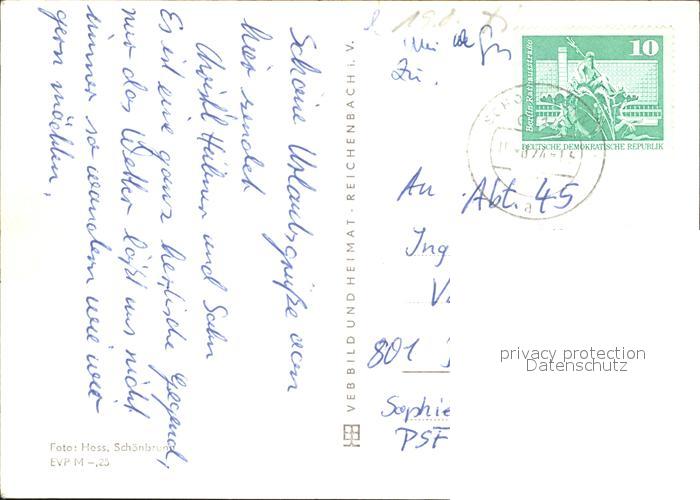 Schöne Urlaubsgrüße von
hier sendet
Christl Hübner und Sohn
Es ist eine ganz herrliche Gegend,
nur das Wetter läßt uns nicht
immer so wandern wie wir
gern möchten.
Foto: Hess, Schönbrunn
EVP M -,25
VEB BILD UND HEIMAT · REICHENBACH I. V.
10
Berlin, Rathausstraße
DEUTSCHE DEMOKRATISCHE REPUBLIK
An Abt. 45
Ing
801
Sophie
PSF
privacy protection
Datenschutz